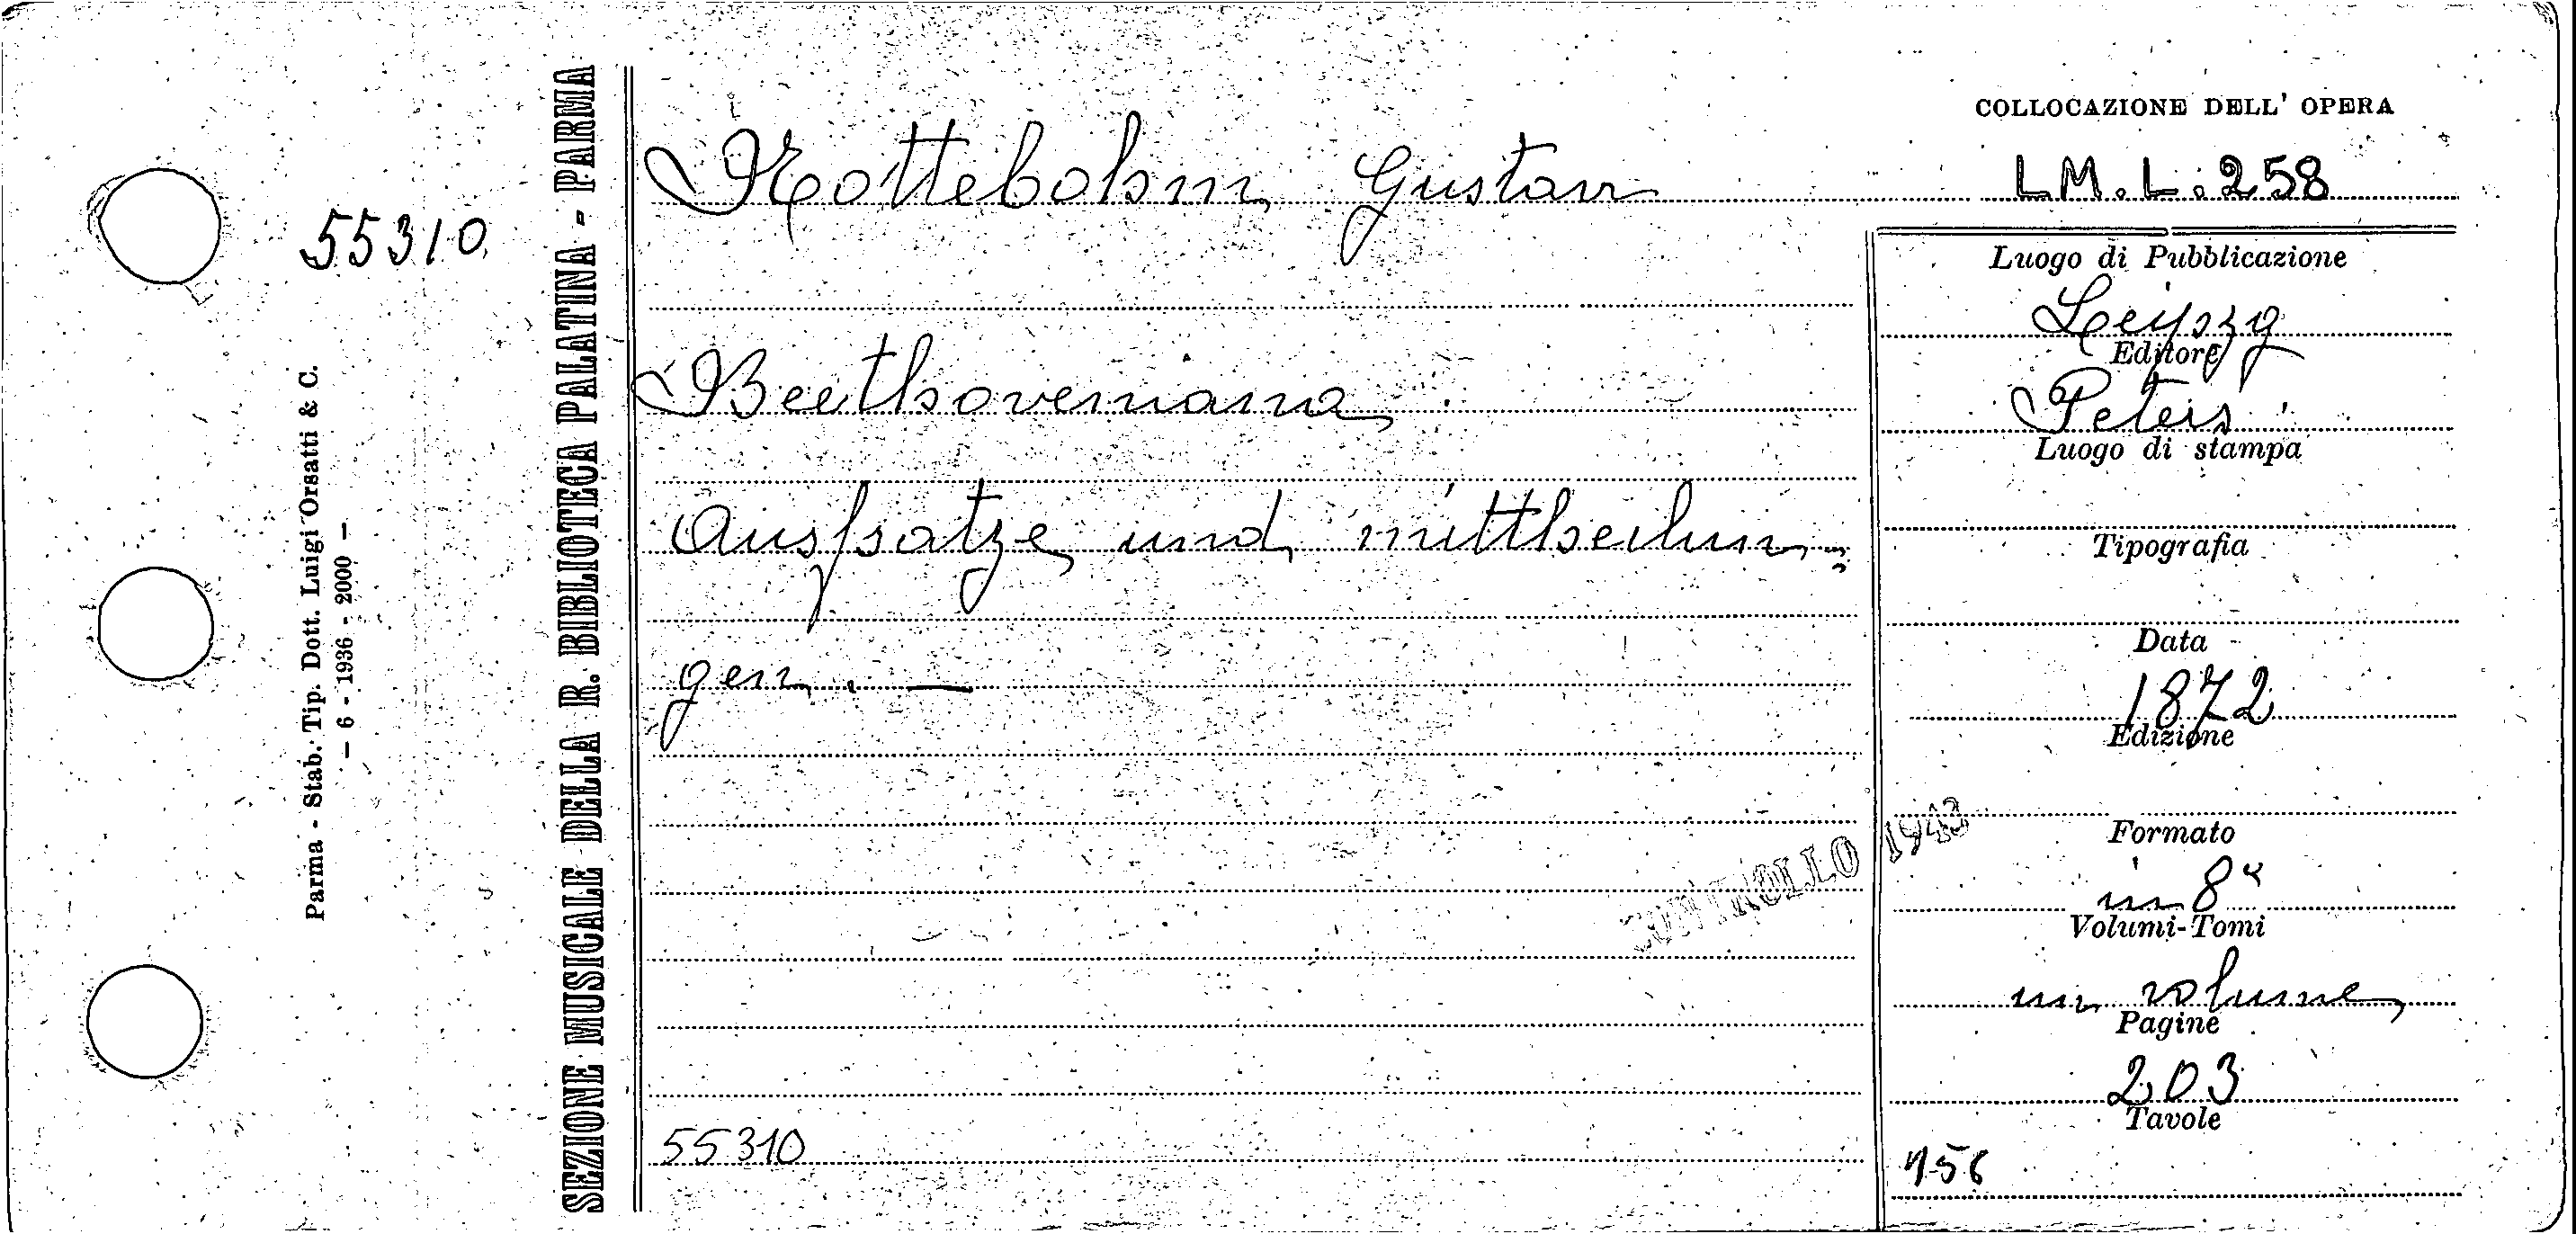 COLLOCAZIONE DELL' OPERA
Nottebohm Gustav
LM.L.258
55310
SEZIONE MUSICALE DELLA R. BIBLIOTECA PALATINA - PARMA
Parma - Stab. Tip. Dott. Luigi Orsatti & C.
– 6 - 1936 - 2000 –
Beethoveniana
Ausfsatze und mittheilun=
gen. —
CONTROLLO 1943
55310
Luogo di Pubblicazione
Leipzig
Editore
Peters
Luogo di stampa
Tipografia
Data
1872
Edizione
Formato
in 8°
Volumi-Tomi
un volume
Pagine
203
Tavole